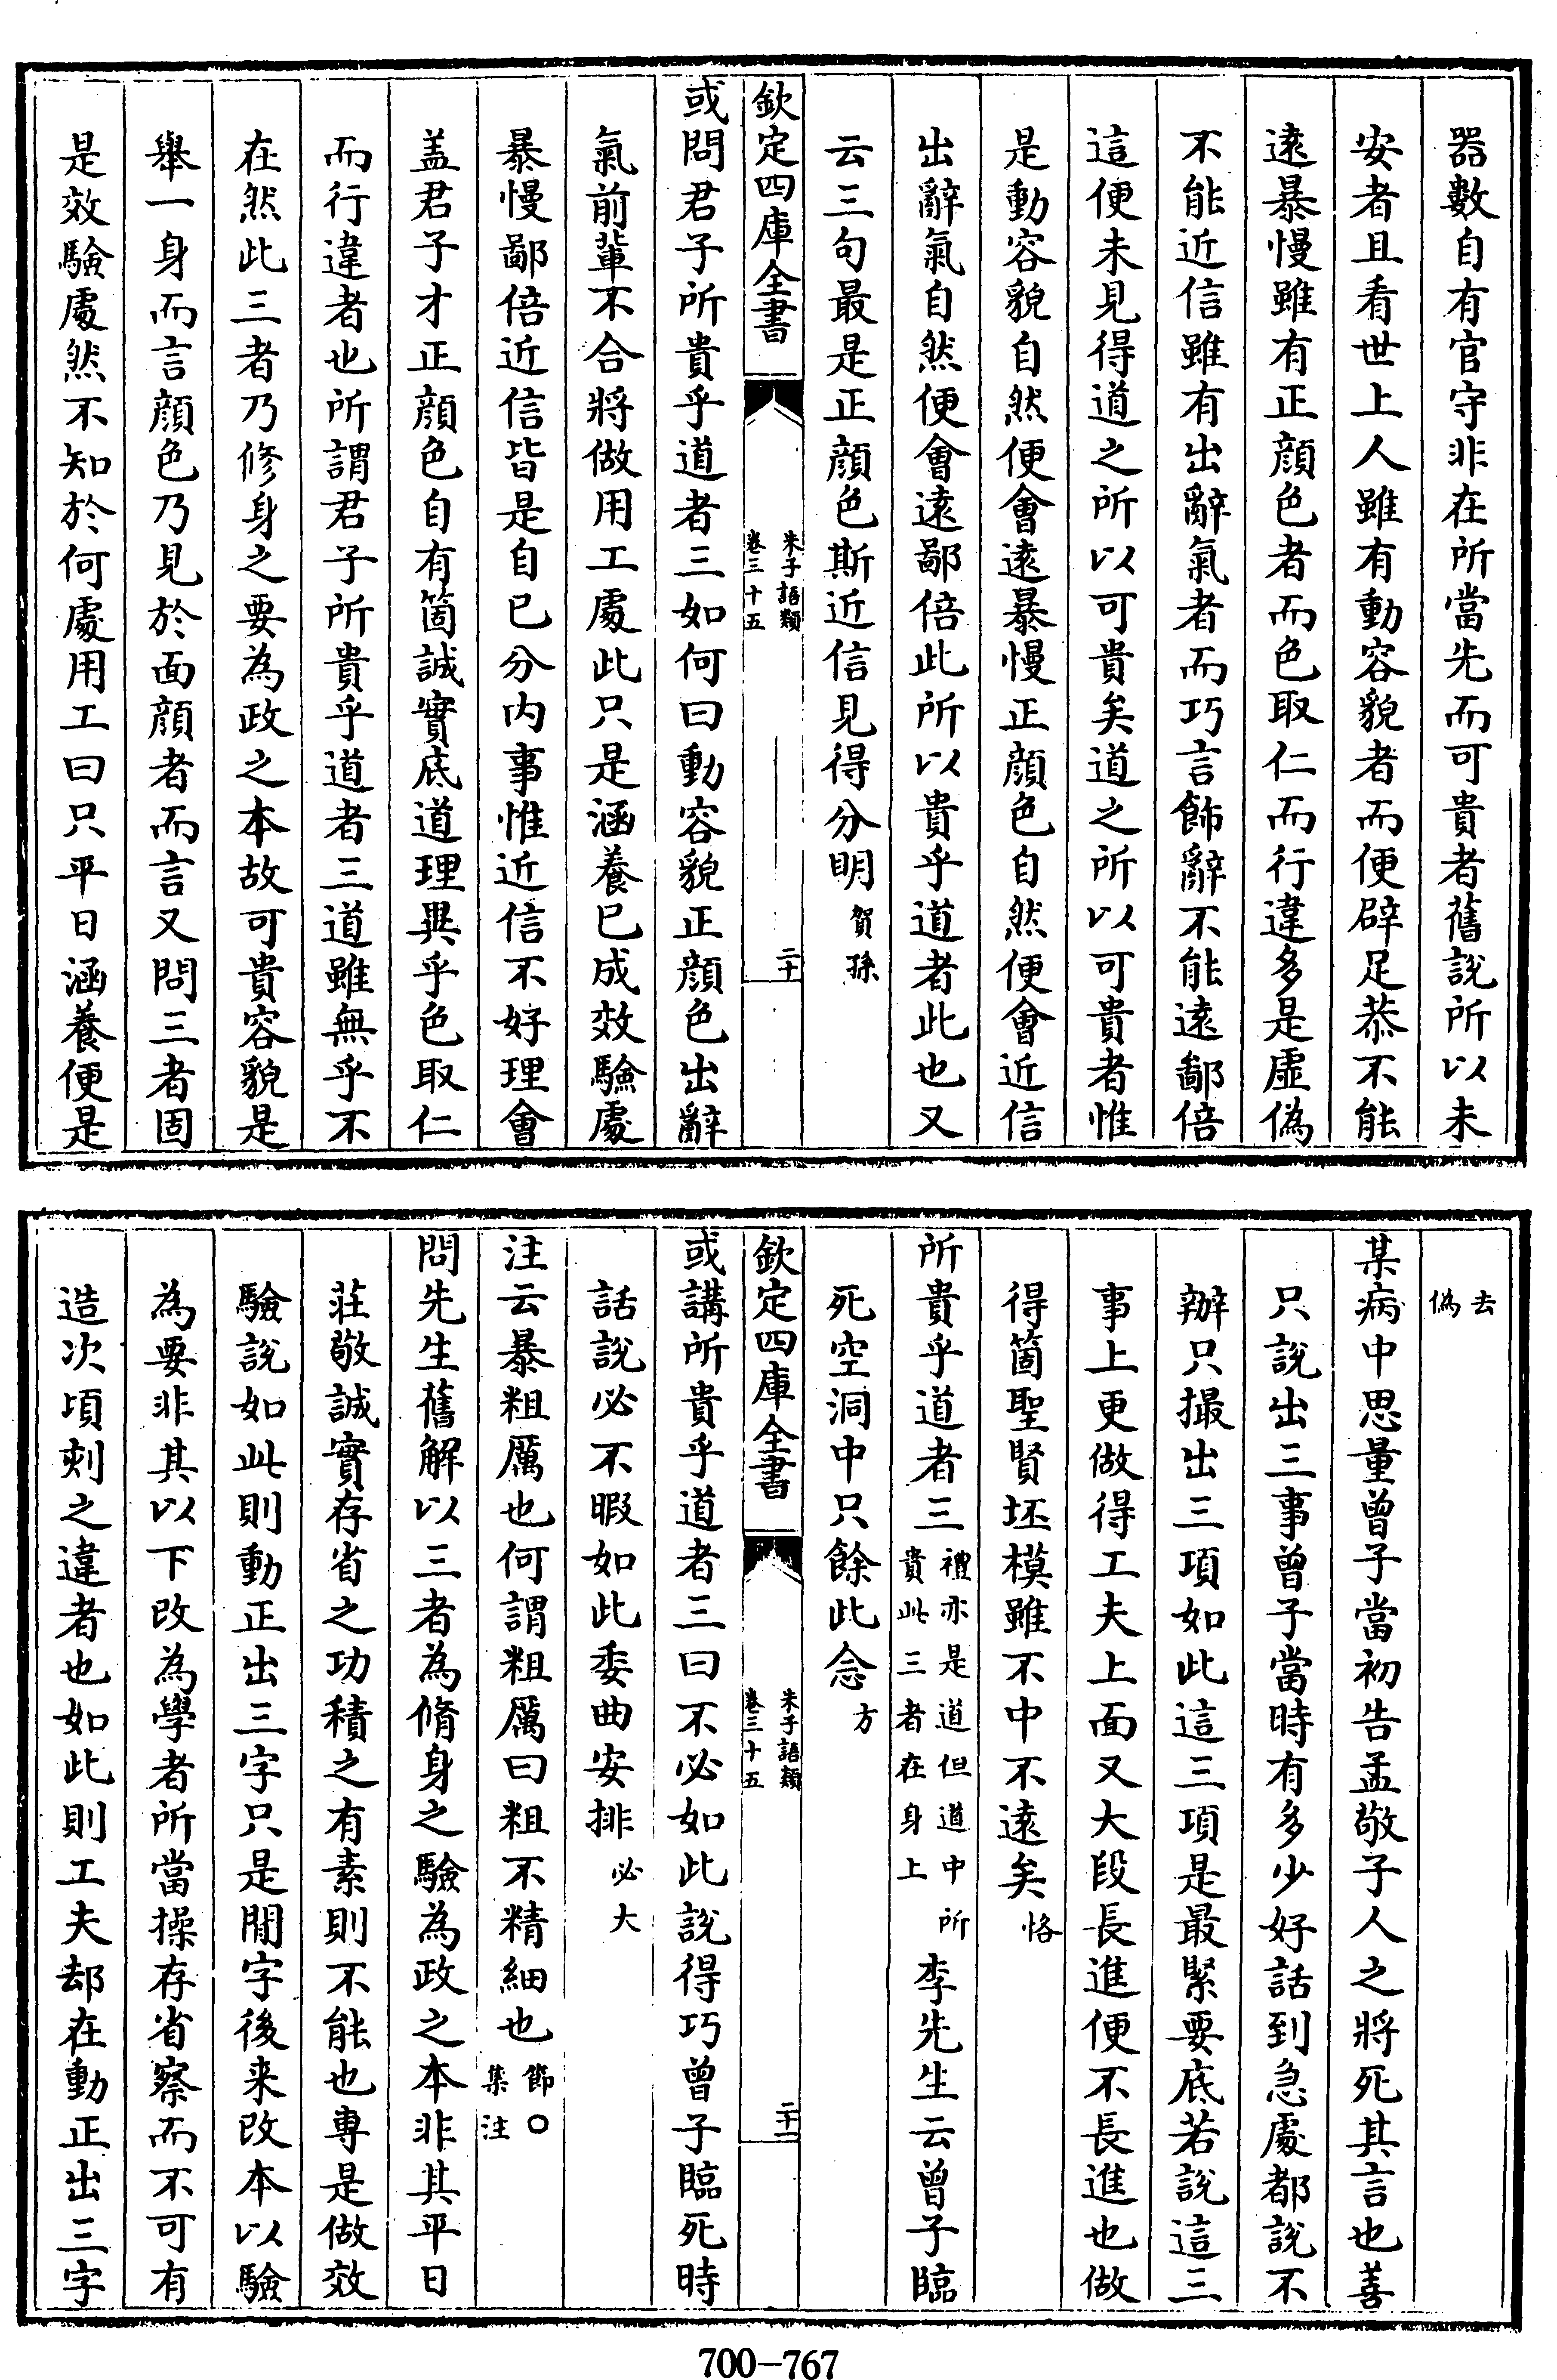 器數自有官守非在所當先而可貴者舊說所以未
安者且看世上人雖有動容貌者而便辟足恭不能
遠暴慢雖有正顔色者而色取仁而行違多是虛偽
不能近信雖有出辭氣者而巧言飾辭不能遠鄙倍
這便未見得道之所以可貴矣道之所以可貴者惟
是動容貌自然便會遠暴慢正顔色自然便會近信
出辭氣自然便會遠鄙倍此所以貴乎道者此也又
云三句最是正顔色斯近信見得分明賀孫
欽定四庫全書
朱子語類
卷三十五
二十
或問君子所貴乎道者三如何曰動容貌正顔色出辭
氣前輩不合將做用工處此只是涵養已成效驗處
暴慢鄙倍近信皆是自已分内事惟近信不好理會
盖君子才正顔色自有箇誠實底道理異乎色取仁
而行違者也所謂君子所貴乎道者三道雖無乎不
在然此三者乃修身之要為政之本故可貴容貌是
舉一身而言顔色乃見於面顔者而言又問三者固
是效驗處然不知於何處用工曰只平日涵養便是
去
偽
某病中思量曾子當初告孟敬子人之將死其言也善
只說出三事曾子當時有多少好話到急處都說不
辦只撮出三項如此這三項是最緊要底若說這三
事上更做得工夫上面又大段長進便不長進也做
得箇聖賢坯模雖不中不遠矣恪
所貴乎道者三
禮亦是道但道中所
貴此三者在身上
李先生云曾子臨
死空洞中只餘此念方
欽定四庫全書
朱子語類
卷三十五
二十一
或講所貴乎道者三曰不必如此說得巧曾子臨死時
話說必不暇如此委曲安排必大
注云暴粗厲也何謂粗厲曰粗不精細也
節○
集注
問先生舊解以三者為脩身之驗為政之本非其平日
莊敬誠實存省之功積之有素則不能也專是做效
驗說如此則動正出三字只是閒字後来改本以驗
為要非其以下改為學者所當操存省察而不可有
造次頃刻之違者也如此則工夫却在動正出三字
700-767